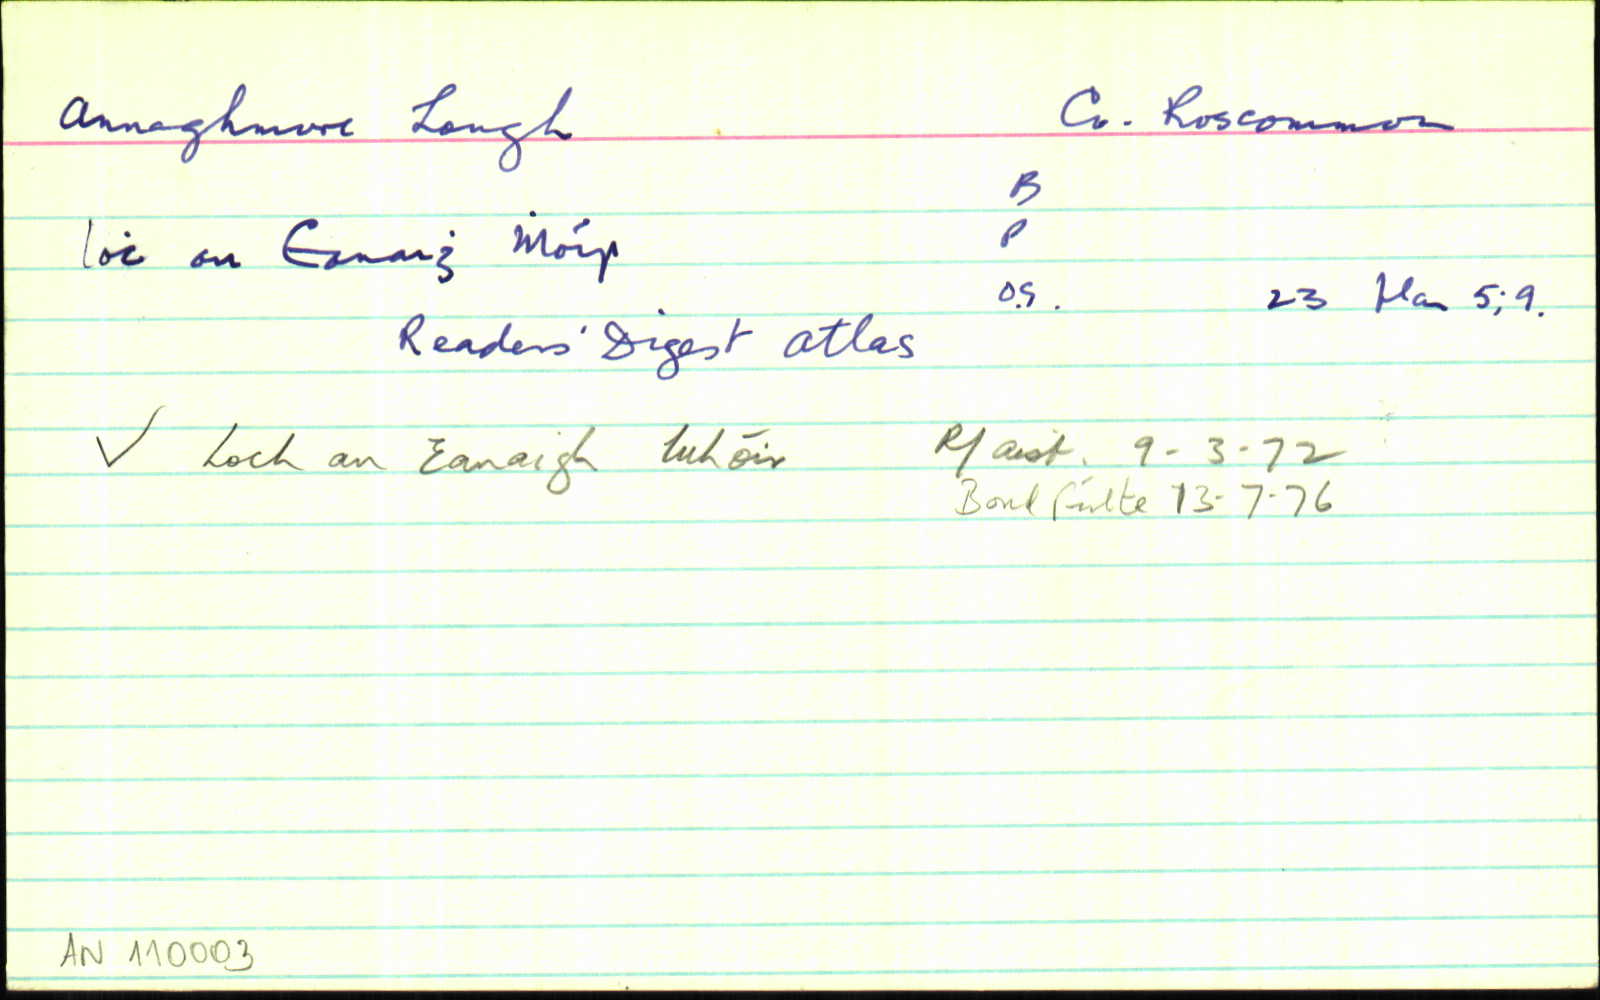 Annaghmore Lough Co. Roscommon
B
loċ an Eanaiġ Ṁóir P
O.S. 23 5; 9.
Readers' Digest atlas
✓ Loch an Eanaigh Mhóir R/aist. 9-3-72
Bord Fáilte 13-7-76
AN 110003